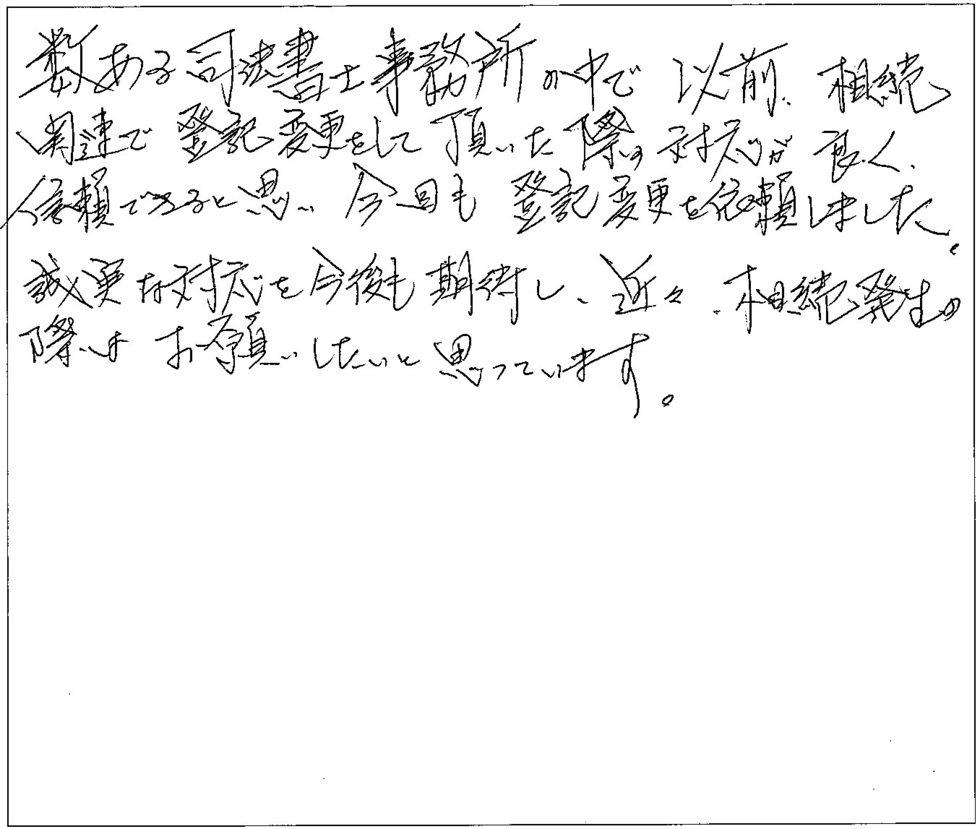 数ある司法書士事務所の中で以前、相続
関連で登記変更をして頂いた際の対応が良く、
信頼できると思い今回も登記変更を依頼しました。
誠実な対応を今後も期待し、近々、相続発生の
際はお願いしたいと思っています。